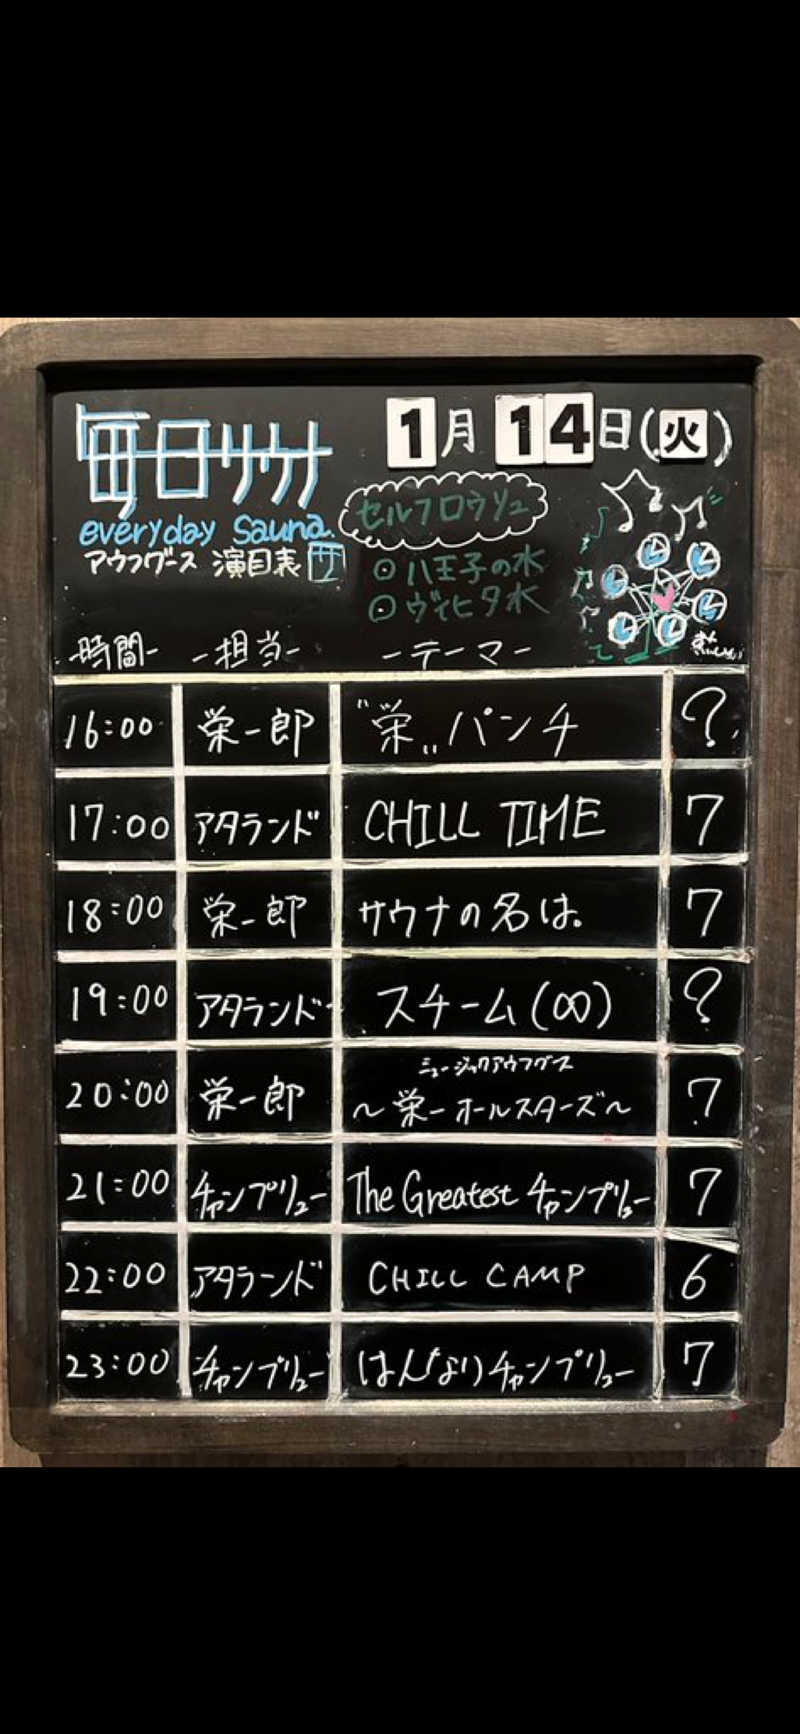 毎日サウナ
1月14日(火)
everyday Sauna.
アウフグース 演目表 サ
セルフロウリュ
⊙八王子の水
⊙ヴィヒタ水
-時間- -担当- -テーマ-
16:00 栄一郎 "栄„パンチ ?
17:00 アタランド CHILL TIME 7
18:00 栄一郎 サウナの名は。 7
19:00 アタランド スチーム(∞) ?
20:00 栄一郎 ミュージックアウフグース
～栄一オールスターズ～ 7
21:00 チャンプリュー The Greatest チャンプリュー 7
22:00 アタランド CHILL CAMP 6
23:00 チャンプリュー はんなりチャンプリュー 7